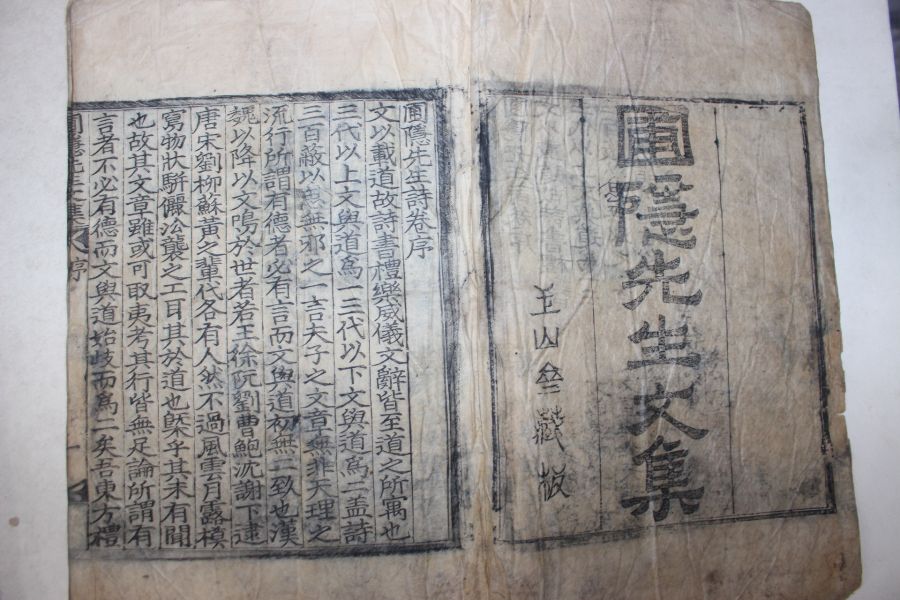 圃隱先生文集
玉山藏板
圃隱先生詩卷序
文以載道故詩書禮樂威儀文辭皆至道之所寓也
三代以上文與道爲一三代以下文與道爲二盖詩
三百蔽以思無邪之一言夫子之文章無非天理之
流行所謂有德者必有言而文與道初無二致也漢
魏以降以文鳴於世者若王徐阮劉曹鮑沈謝下逮
唐宋劉柳蘇黃之輩代各有人然不過風雲月露模
寫物狀騈儷㳂襲之工耳其於道也槩乎其未有聞
也故其文章雖或可取夷考其行皆無足論所謂有
言者不必有德而文與道始歧而爲二矣吾東方禮
圃隱先生文集 序 一